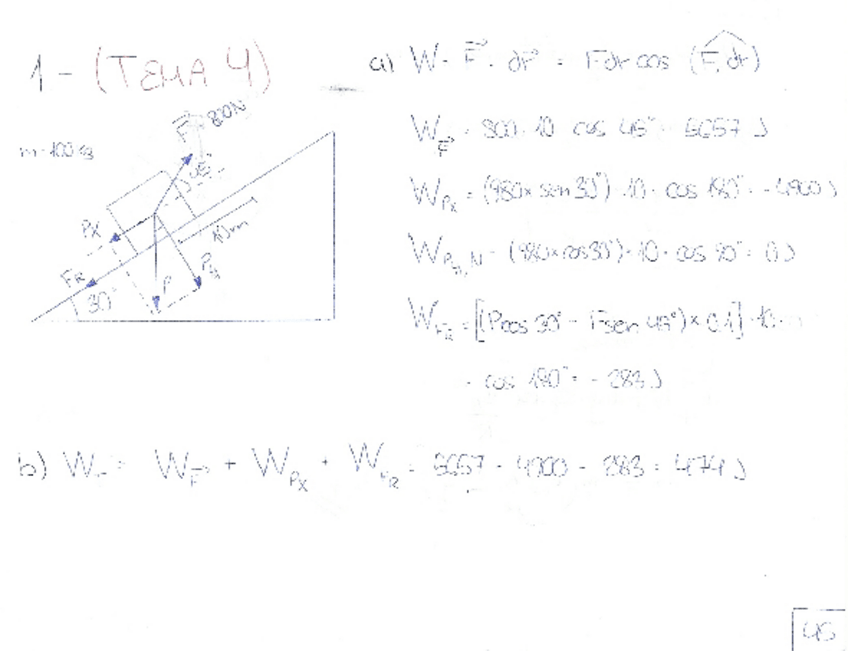 1 - (TEMA 4)
m=100 kg
F = 800N
45°
Px
10m
FR
30°
P
Py
a) W = F · dr = F dr cos (F, dr)
W_F = 800 · 10 · cos 45° = 5657 J
W_Px = (980 × sen 30°) · 10 · cos 180° = -4900 J
W_Py,N = (980 × cos 30°) · 10 · cos 90° = 0 J
W_FR = [(P cos 30° - F sen 45°) × 0.1] · 10 ·
· cos 180° = - 283 J
b) W_T = W_F + W_Px + W_FR = 5657 - 4900 - 283 = 474 J
45